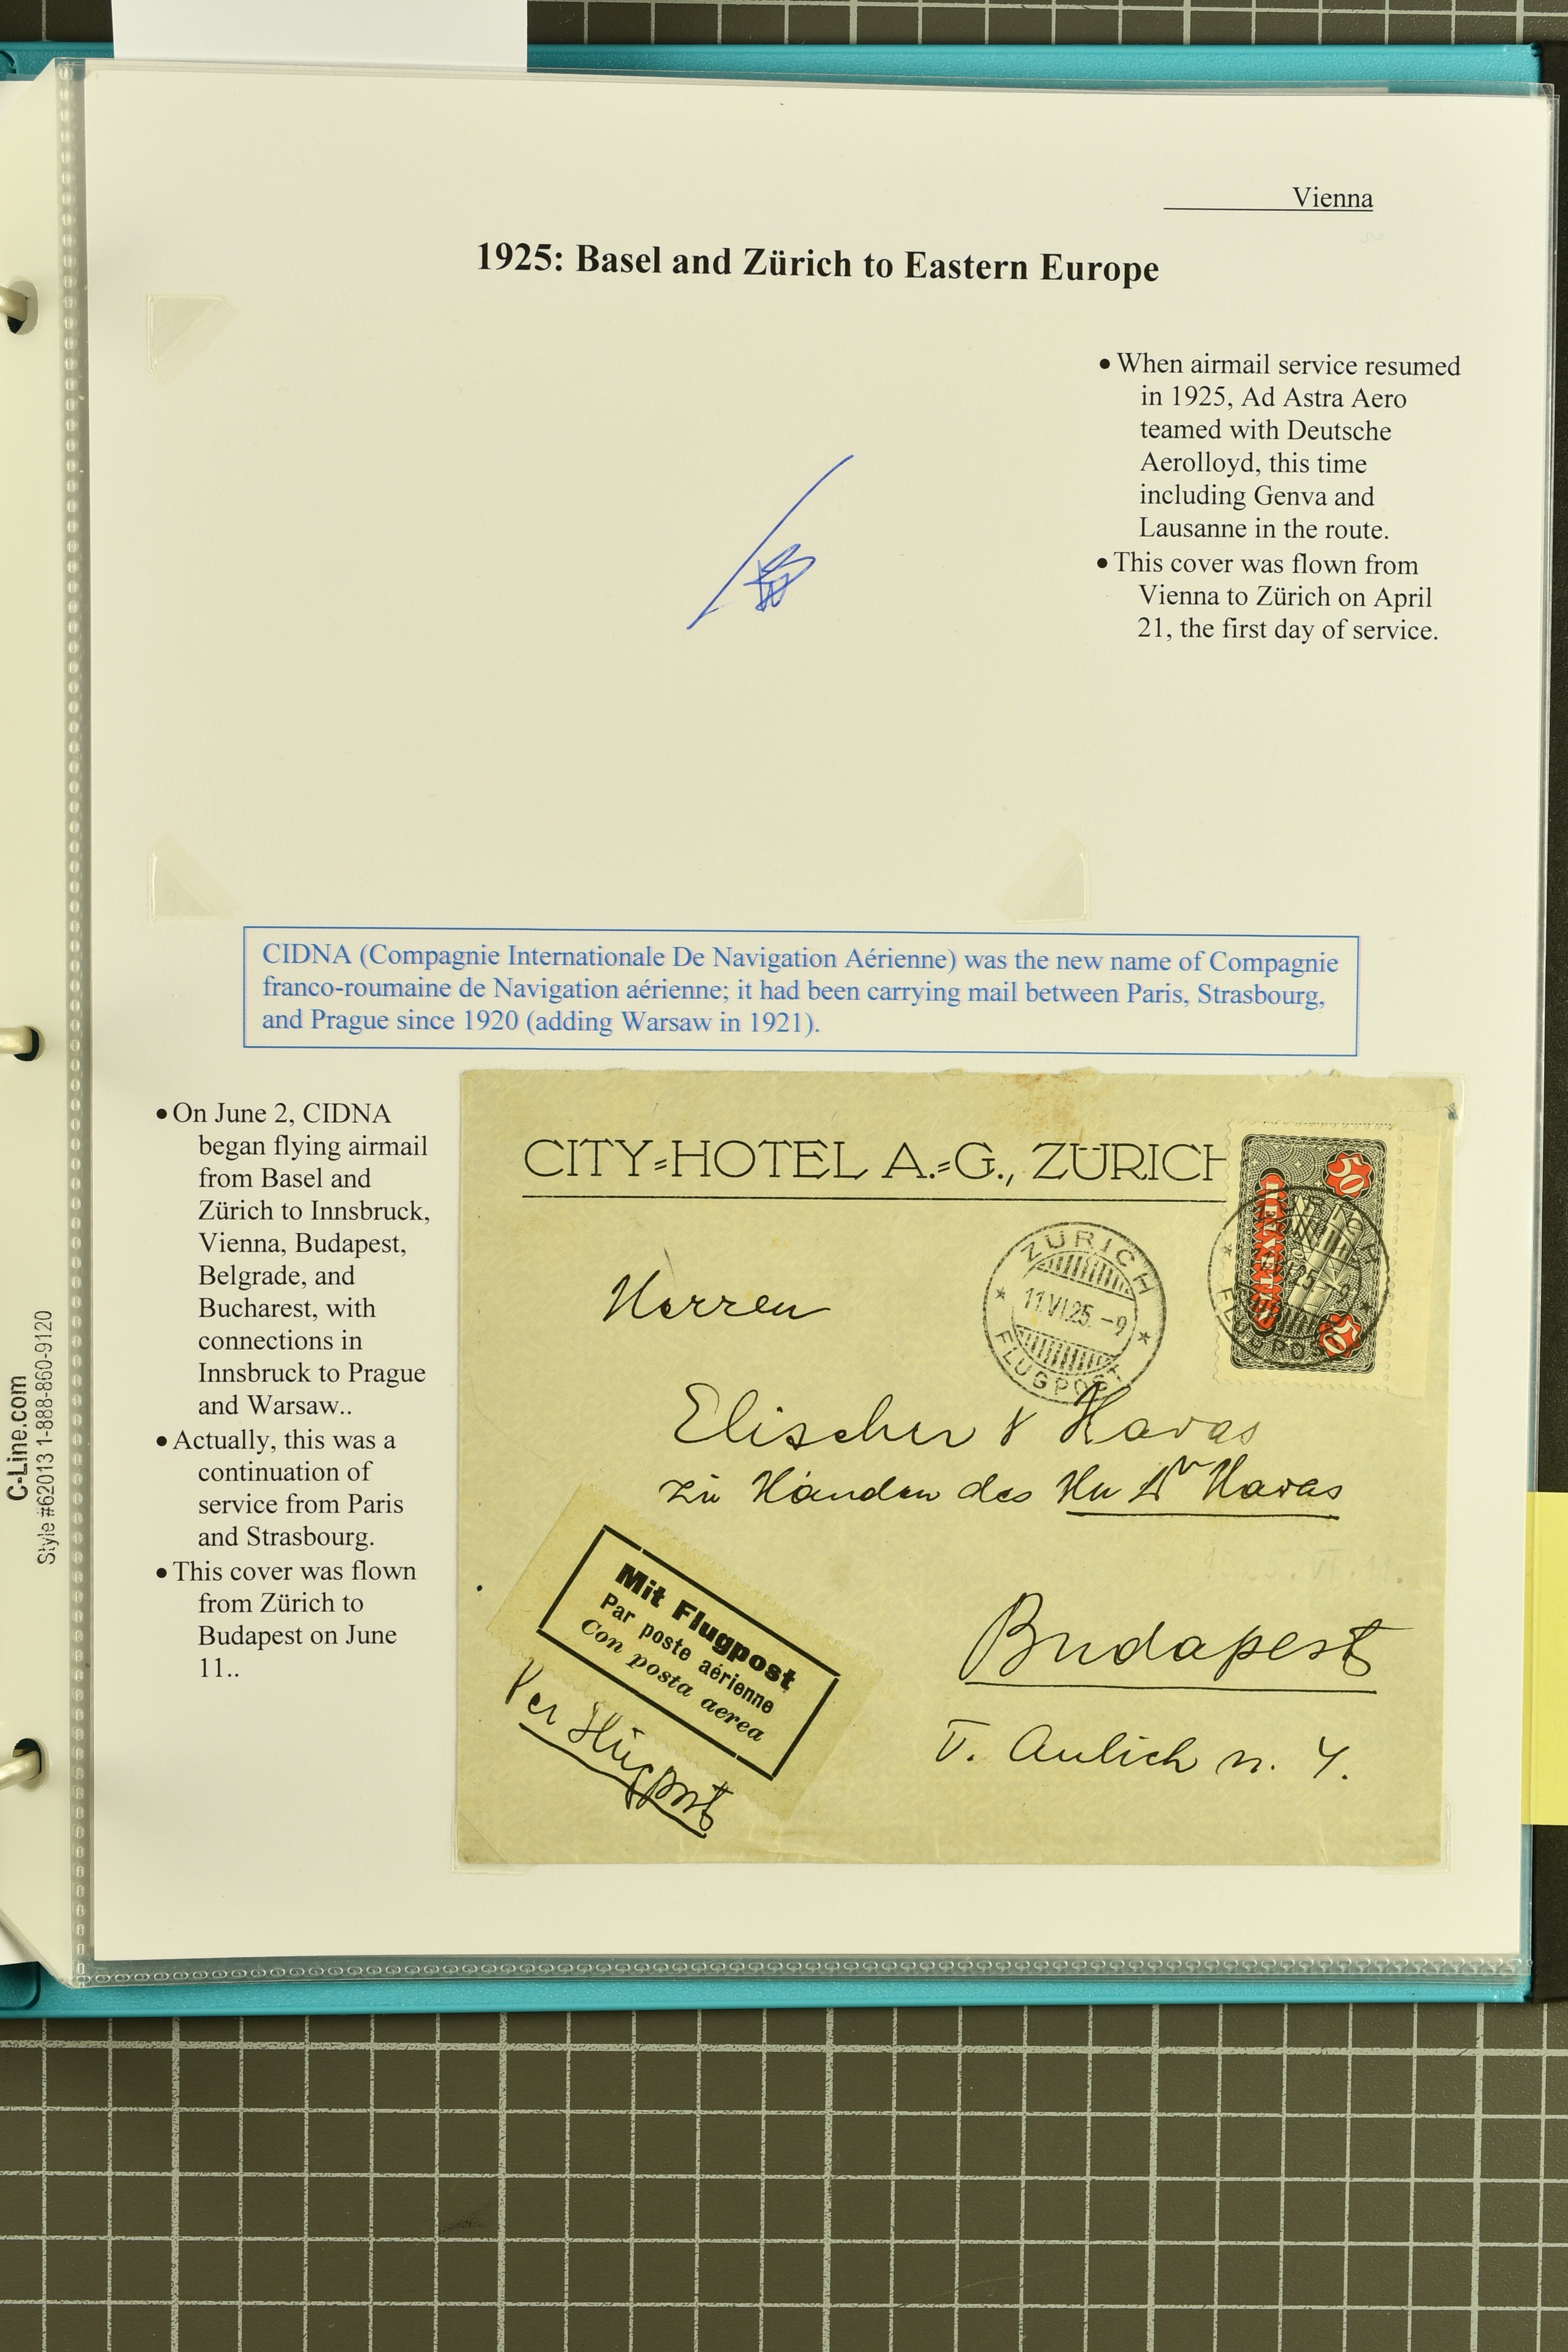 Vienna
1925: Basel and Zürich to Eastern Europe
• When airmail service resumed
in 1925, Ad Astra Aero
teamed with Deutsche
Aerolloyd, this time
including Genva and
Lausanne in the route.
• This cover was flown from
Vienna to Zürich on April
21, the first day of service.
CIDNA (Compagnie Internationale De Navigation Aérienne) was the new name of Compagnie
franco-roumaine de Navigation aérienne; it had been carrying mail between Paris, Strasbourg,
and Prague since 1920 (adding Warsaw in 1921).
• On June 2, CIDNA
began flying airmail
from Basel and
Zürich to Innsbruck,
Vienna, Budapest,
Belgrade, and
Bucharest, with
connections in
Innsbruck to Prague
and Warsaw..
• Actually, this was a
continuation of
service from Paris
and Strasbourg.
• This cover was flown
from Zürich to
Budapest on June
11..
CITY=HOTEL A.=G., ZÜRICH
50
HELVETIA
50
ZÜRICH
11.VI.25.-9
FLUGPOST
Herren
Elischer & Havas
zu Händen des Hn Dr Havas
Budapest
V. Aulich n. 4.
Mit Flugpost
Par poste aérienne
Con posta aerea
Per Flugpost
C-Line.com
Style #62013 1-888-860-9120